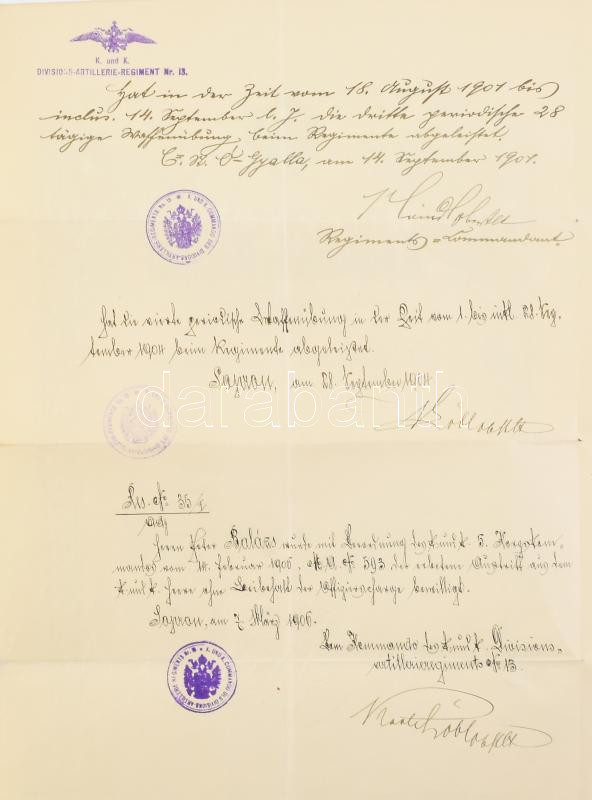 K. und K.
DIVISIONS-ARTILLERIE-REGIMENT Nr. 13.
Hat in der Zeit vom 18. August 1901 bis
inclus. 14. September l. J. die dritte periodische 28
tägige Waffenübung beim Regimente abgeleistet.
Ó-Gyalla, am 14. September 1901.
Oberstlt
Regiments-Commandant.
K. UND K. COMMANDO DES DIVISIONS-ARTILLERIE-REGIMENTS Nr. 13
Hat die vierte periodische Waffenübung in der Zeit vom 1. bis inkl. 28. Sep-
tember 1904 beim Regimente abgeleistet.
Sopron, am 28. September 1904
darabanth
Res. No 35
Herrn Peter Balázs wurde mit Verordnung des k. und k. 5. Korpskom-
mandos vom 14. Februar 1906, M. A. No 593 der erbetene Austritt aus dem
k. und k. Heere ohne Beibehalt der Offizierscharge bewilligt.
Sopron, am 7. März 1906.
Vom Kommando des k. und k. Divisions-
artillerieregiments No 13.
K. UND K. COMMANDO DES DIVISIONS-ARTILLERIE-REGIMENTS Nr. 13